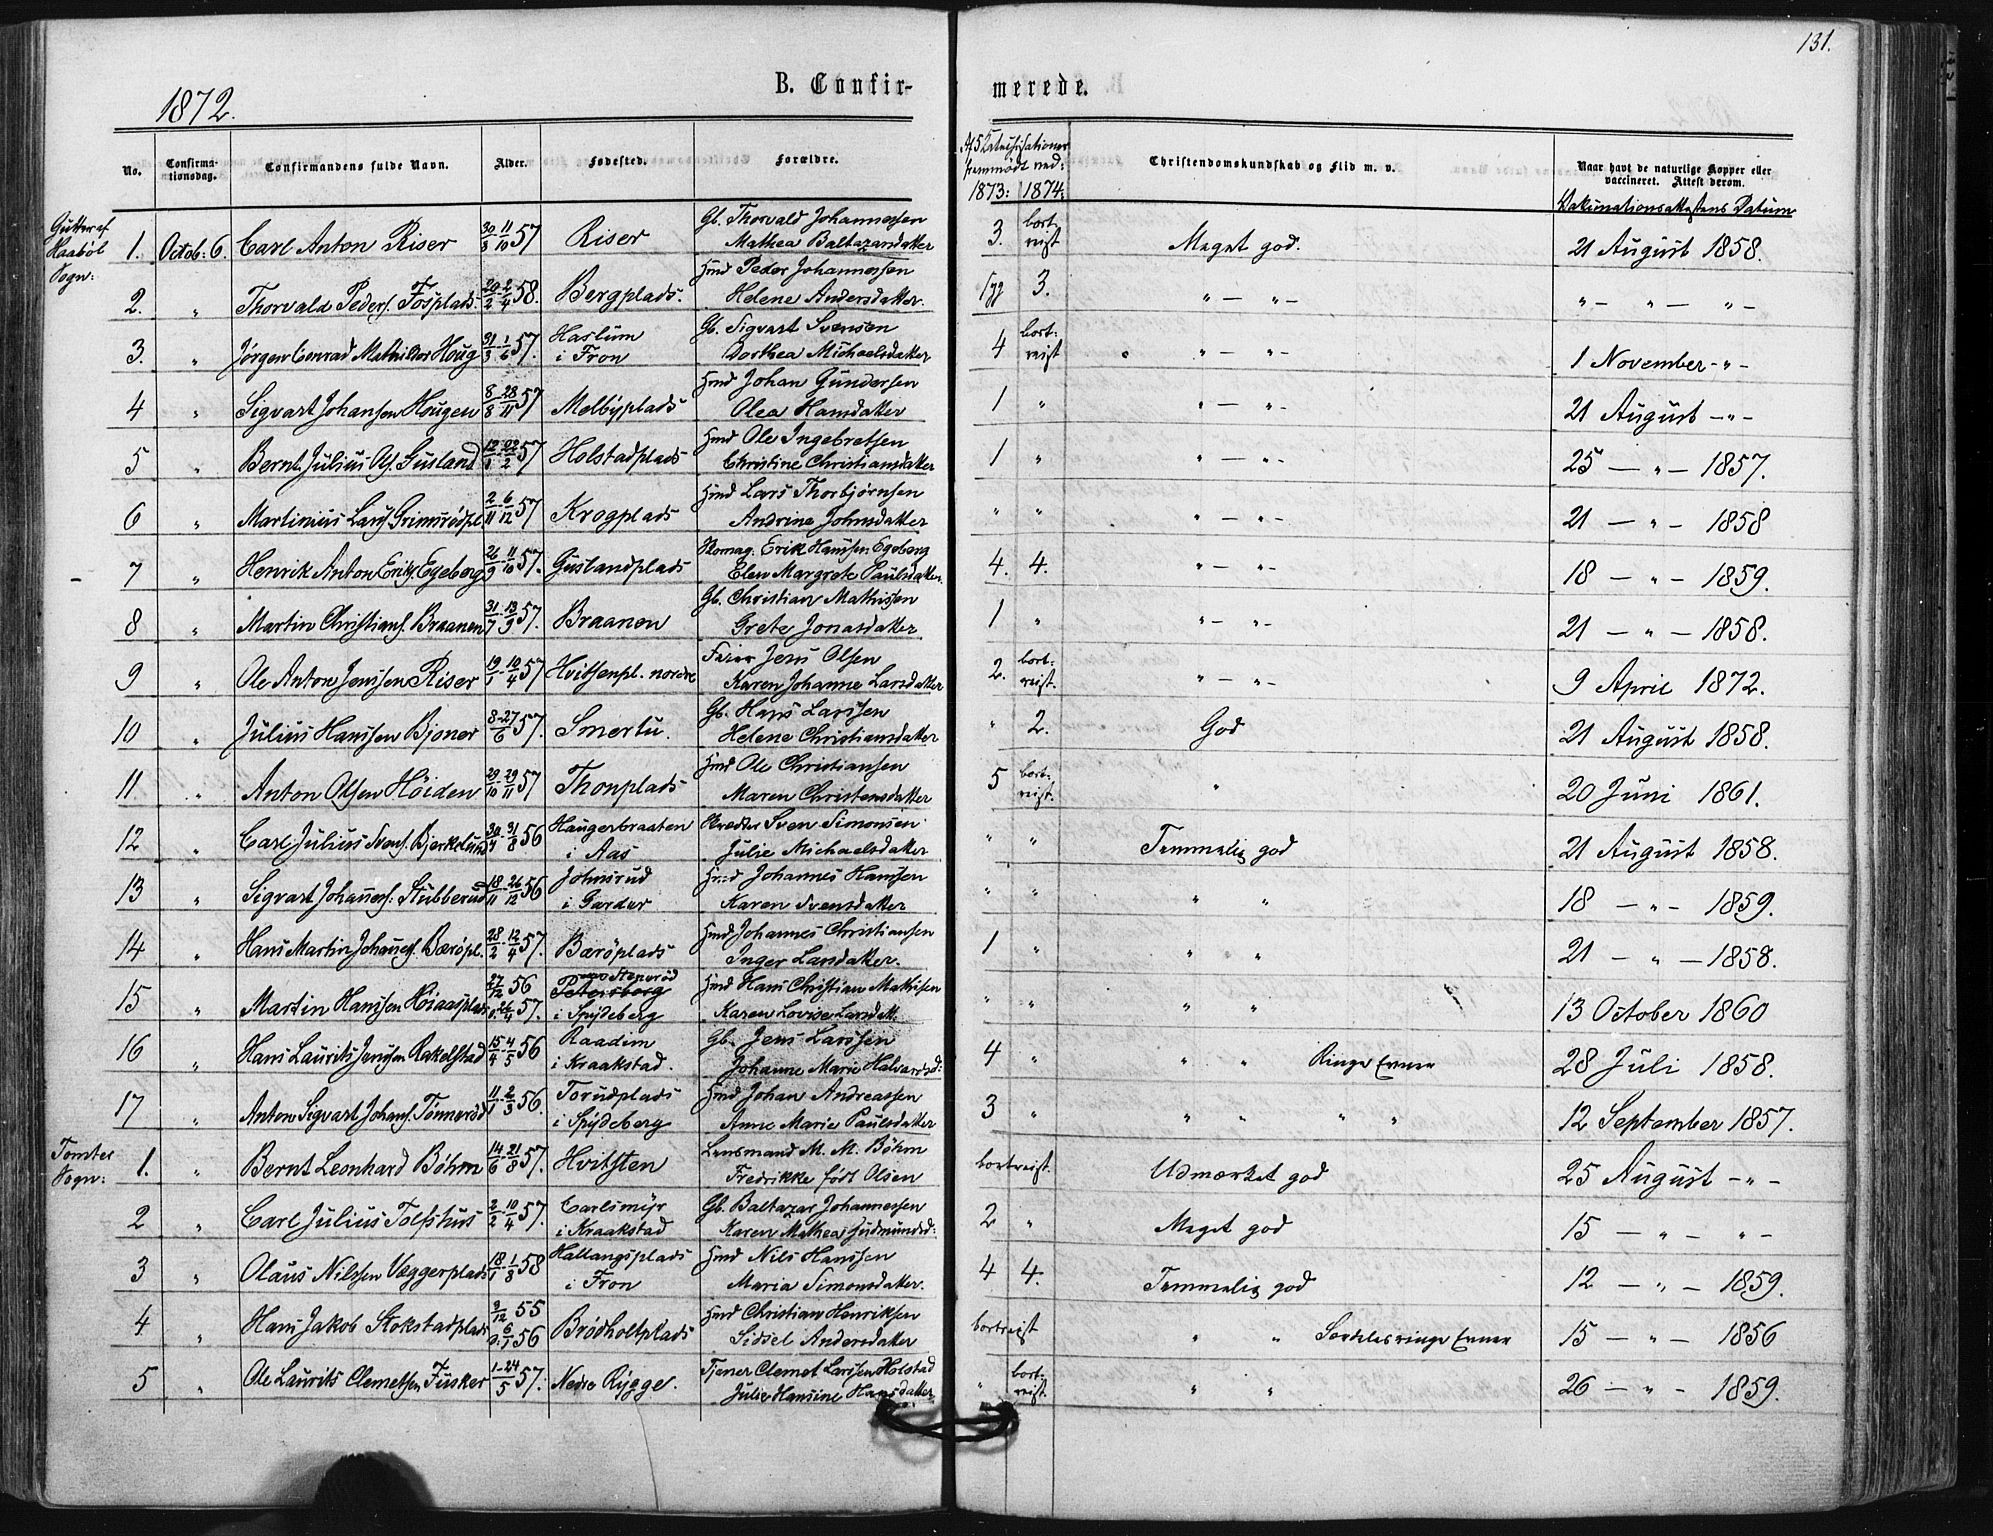 131.
B. Confir-
merede.
1872.
No.
Confirma-
tionsdag.
Confirmandens fulde Navn.
Alder.
Fødested.
Forældre.
Af 5 Katechisationer
fremmødt ved:
1873: 1874:
Christendomskundskab og Flid m. v.
Naar havt de naturlige Kopper eller
vaccineret. Attest derom.
Vakcinationsattestens Datum
Gutter af
Haabøl
Sogn:
1. Octob: 6. Carl Anton Riser 30/3 11/10 57 Riser Gb. Thorvald Johannessen
Mathea Baltazarsdatter 3. bort-
reist Meget god. 21 August 1858.
2. " Thorvald Peders. Fosplads 20/2 - 2/4 58. Bergplads. Hmd Peder Johannessen
Helene Andersdatter. syg 3. " — " — " — " — " —
3. " Jørgen Conrad Mathildor Houg 31/3 1/6 57. Haslum
i Fron Gb. Sigvart Svensen
Dorthea Michaelsdatter 4 bort-
reist " — " — 1 November - " -
4 " Sigvart Johansen Hougen 8/8 28/11 57 Melbyplads Hmd Johan Gundersen
Olea Hansdatter 1 " " — " — 21 August — " —
5 " Bernt Julius Ols. Gusland 12/1 22/2 57 Holstadplads Hmd Ole Ingebretsen
Christine Christiansdatter 1 " " — " — 25 — " — 1857.
6 " Martinius Lars. Grimsrødpl. 2/11 6/12 57 Krogplads Hmd Lars Thorbjørnsen
Andrine Johnsdatter " " " — " — 21 — " — 1858
7 " Henrik Anton Eriks. Egeberg 26/9 11/10 57. Guslandplads Skomag. Erik Hanssen Egeberg
Elen Margrete Paulsdatter. 4. 4. " — " — 18 — " — 1859.
8 " Martin Christians. Braanen 31/7 13/9 57. Braanen Gb. Christian Mathisen
Grete Jonasdatter. 1 " " — " — 21 — " — 1858.
9 " Ole Anton Jenssen Riser 19/1 10/4 57 Hvitstenpl. nordre Jens Olsen
Karen Johanne Larsdatter 2. bort-
reist. " — " — 9 April 1872.
10 " Julius Hanssen Bjoner 8-27/6 57. Smertu. Gb. Hans Larssen
Helene Christiansdatter " 2. God 21 August 1858.
11 " Anton Olsen Høiden 29/10 29/11 57 Thonplads Hmd Ole Christiansen
Maren Christensdatter 5 bort-
reist. " 20 Juni 1861.
12 " Carl Julius Svens. Bjerkelund 30/4 31/8 56 Haugerbraaten
i Aas Skrædder Sven Simonsen
Julie Michaelsdatter " " Temmelig god 21 August 1858.
13 " Sigvart Johannes. Stubberud 18/11 26/12 56 Johnsrud
i Garder Hmd Johannes Hanssen
Karen Svensdatter " " " " 18 — " — 1859.
14 " Hans Martin Johannes. Bærøpl. 28/2 12/4 57. Bærøplads Hmd Johannes Christiansen
Inger Larsdatter. 1 " " " 21 — " — 1858.
15 " Martin Hanssen Høiaasplads 27/12 56
26/4 57. Petersborg
i Spydeberg Hmd Hans Christian Mathisen
Karen Lovise Larsdatt. " " " " 13 October 1860
16 " Hans Laurits Jenssen Rakelstad 15/4 4/5 56 Raadim
i Kraakstad. Gb. Jens Larssen
Johanne Marie Halvorsd: 4 " " " Ringe Evner 28 Juli 1858.
17 " Anton Sigvart Johans. Tønnerød 11/1 2/3 56. Torudplads
i Spydeberg Hmd Johan Andreassen
Anne Marie Paulsdatter 3 " " " " " 12 September 1857.
Tomter
Sogn:
1. " Bernt Leonhard Bøhm 14/6 21/8 57. Hvitsten Lensmand M. M. Bøhm
Fredrikke født Olsen bortreist. Udmærket god 25 August — " —
2 " Carl Julius Tolfshus 2/2 10/4 57. Carlsmyr
i Kraakstad Gb. Baltazar Johannessen
Karen Mathea Gudmundsd: 2 " Meget god 15 — " — " —
3 " Olaus Nilssen Væggerplads 18/1 1/3 58 Hallangsplads
i Fron Hmd Nils Hanssen
Maria Simonsdatter. 4 4. Temmelig god 12 — " — 1859.
4 " Hans Jakob Stokstadplads 9/12 55
6/1 56 Brødholtplads Hmd Christian Henriksen
Sidsel Andersdatter bortreist " " Særdeles ringe Evner 15 — " — 1856
5 " Ole Laurits Clemetsen Fusker 1-24/5 57. Nedre Rygge. Tjener Clemet Larssen Holstad
Julie Hansine Hansdatter " bort-
reist. " " 26 — " — 1859.